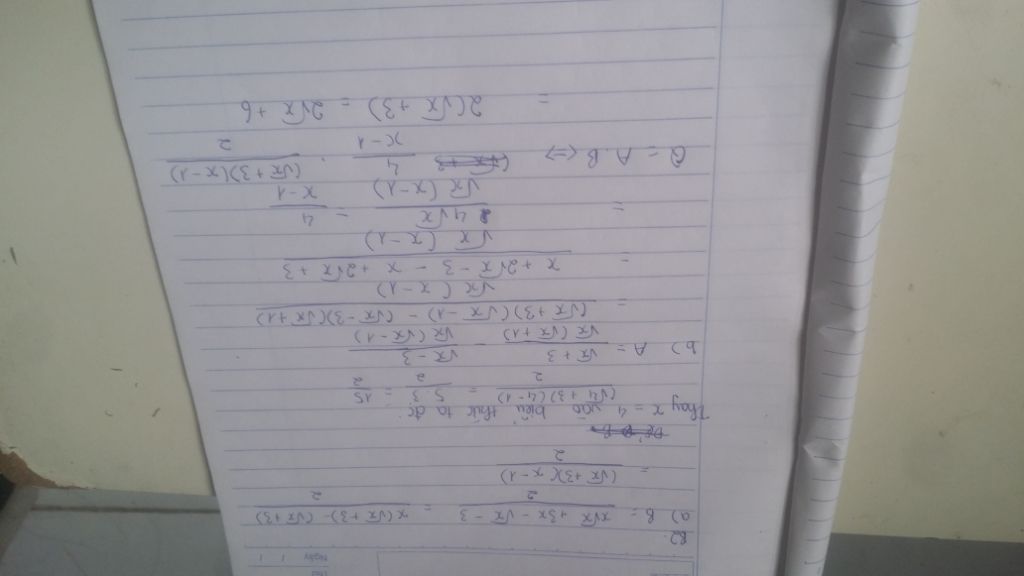 Thứ
Ngày / /
B2.
a) B = (x√x + 3x - √x - 3)/2 = (x(√x+3) - (√x+3))/2
= ((√x+3)(x-1))/2
Thay x = 4 vào biểu thức ta đc:
((√4+3)(4-1))/2 = (5.3)/2 = 15/2
b) A = (√x+3)/(√x(√x+1)) - (√x-3)/(√x(√x-1))
= ((√x+3)(√x-1) - (√x-3)(√x+1))/(√x(x-1))
= (x + 2√x - 3 - x + 2√x + 3)/(√x(x-1))
= (4√x)/(√x(x-1)) = 4/(x-1)
Q = A.B <=> 4/(x-1) . ((√x+3)(x-1))/2
= 2(√x+3) = 2√x + 6